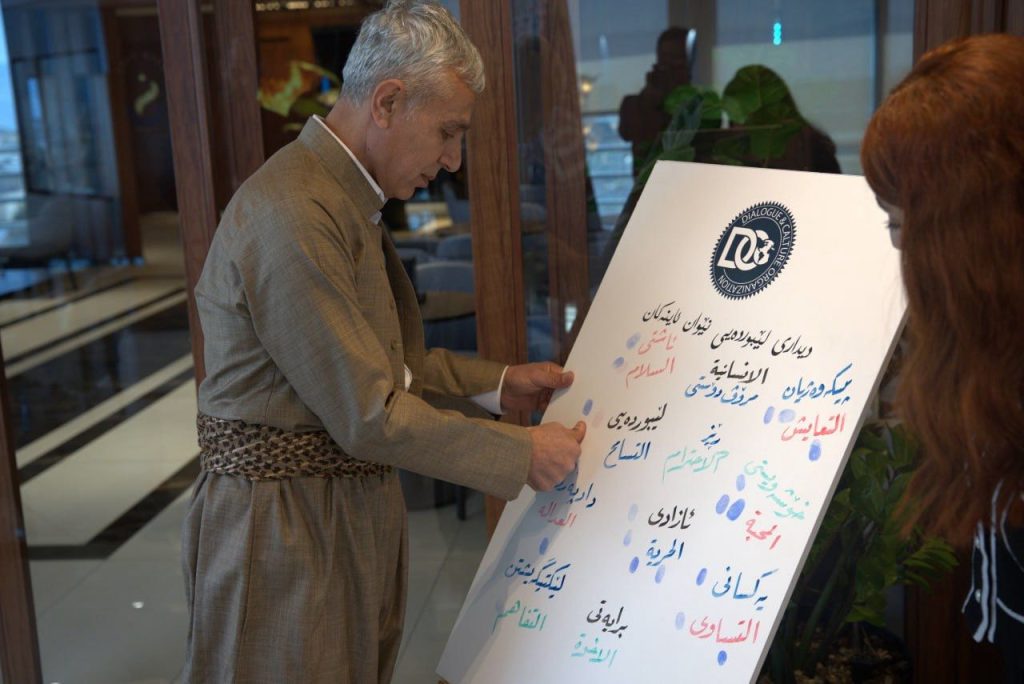 DIALOGUE & CULTURE ORGANIZATION
DC
دیداری لێبوردەیی نێوان ئاینەکان
ئاشتی
السلام
الانسانیة
مرۆڤ دوستی
پیکەوەژیان
التعایش
لێبوردەیی
التسامح
ڕێز
الاحترام
خۆشەویستی
المحبة
دادپەر
العدالة
ئازادی
الحرية
لێکتێگەیشتن
التفاهم
برایەتی
الاخوة
یەکسانی
التساوی